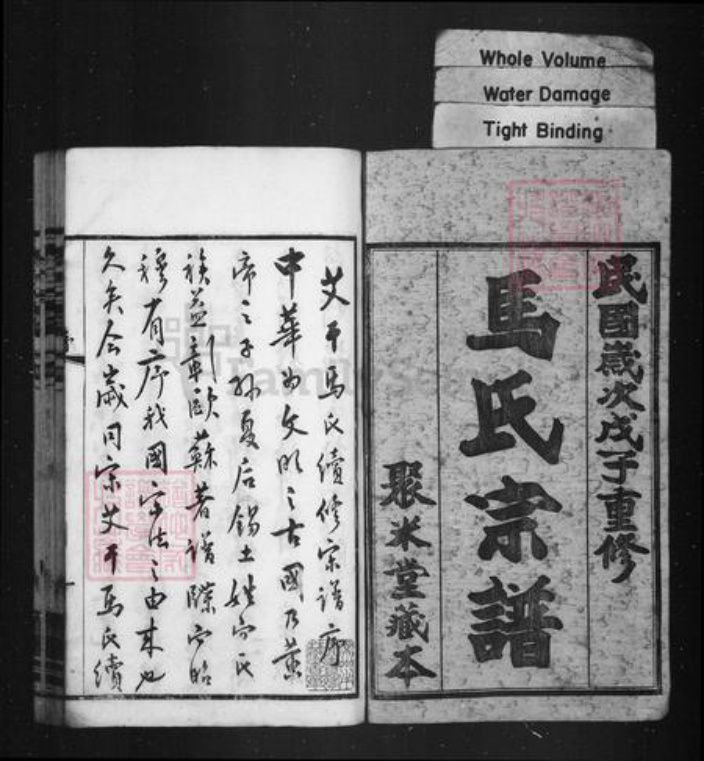 Whole Volume
Water Damage
Tight Binding
民國歲次戊子重修
馬氏宗譜
聚米堂藏本
艾干馬氏續修宗譜序
中華為文明之古國乃黃
帝之子孫夏后錫土姓字氏
族益章歐蘇著譜牒而昭
穆有序我國宗法之由來也
久矣今歲同宗艾干馬氏續